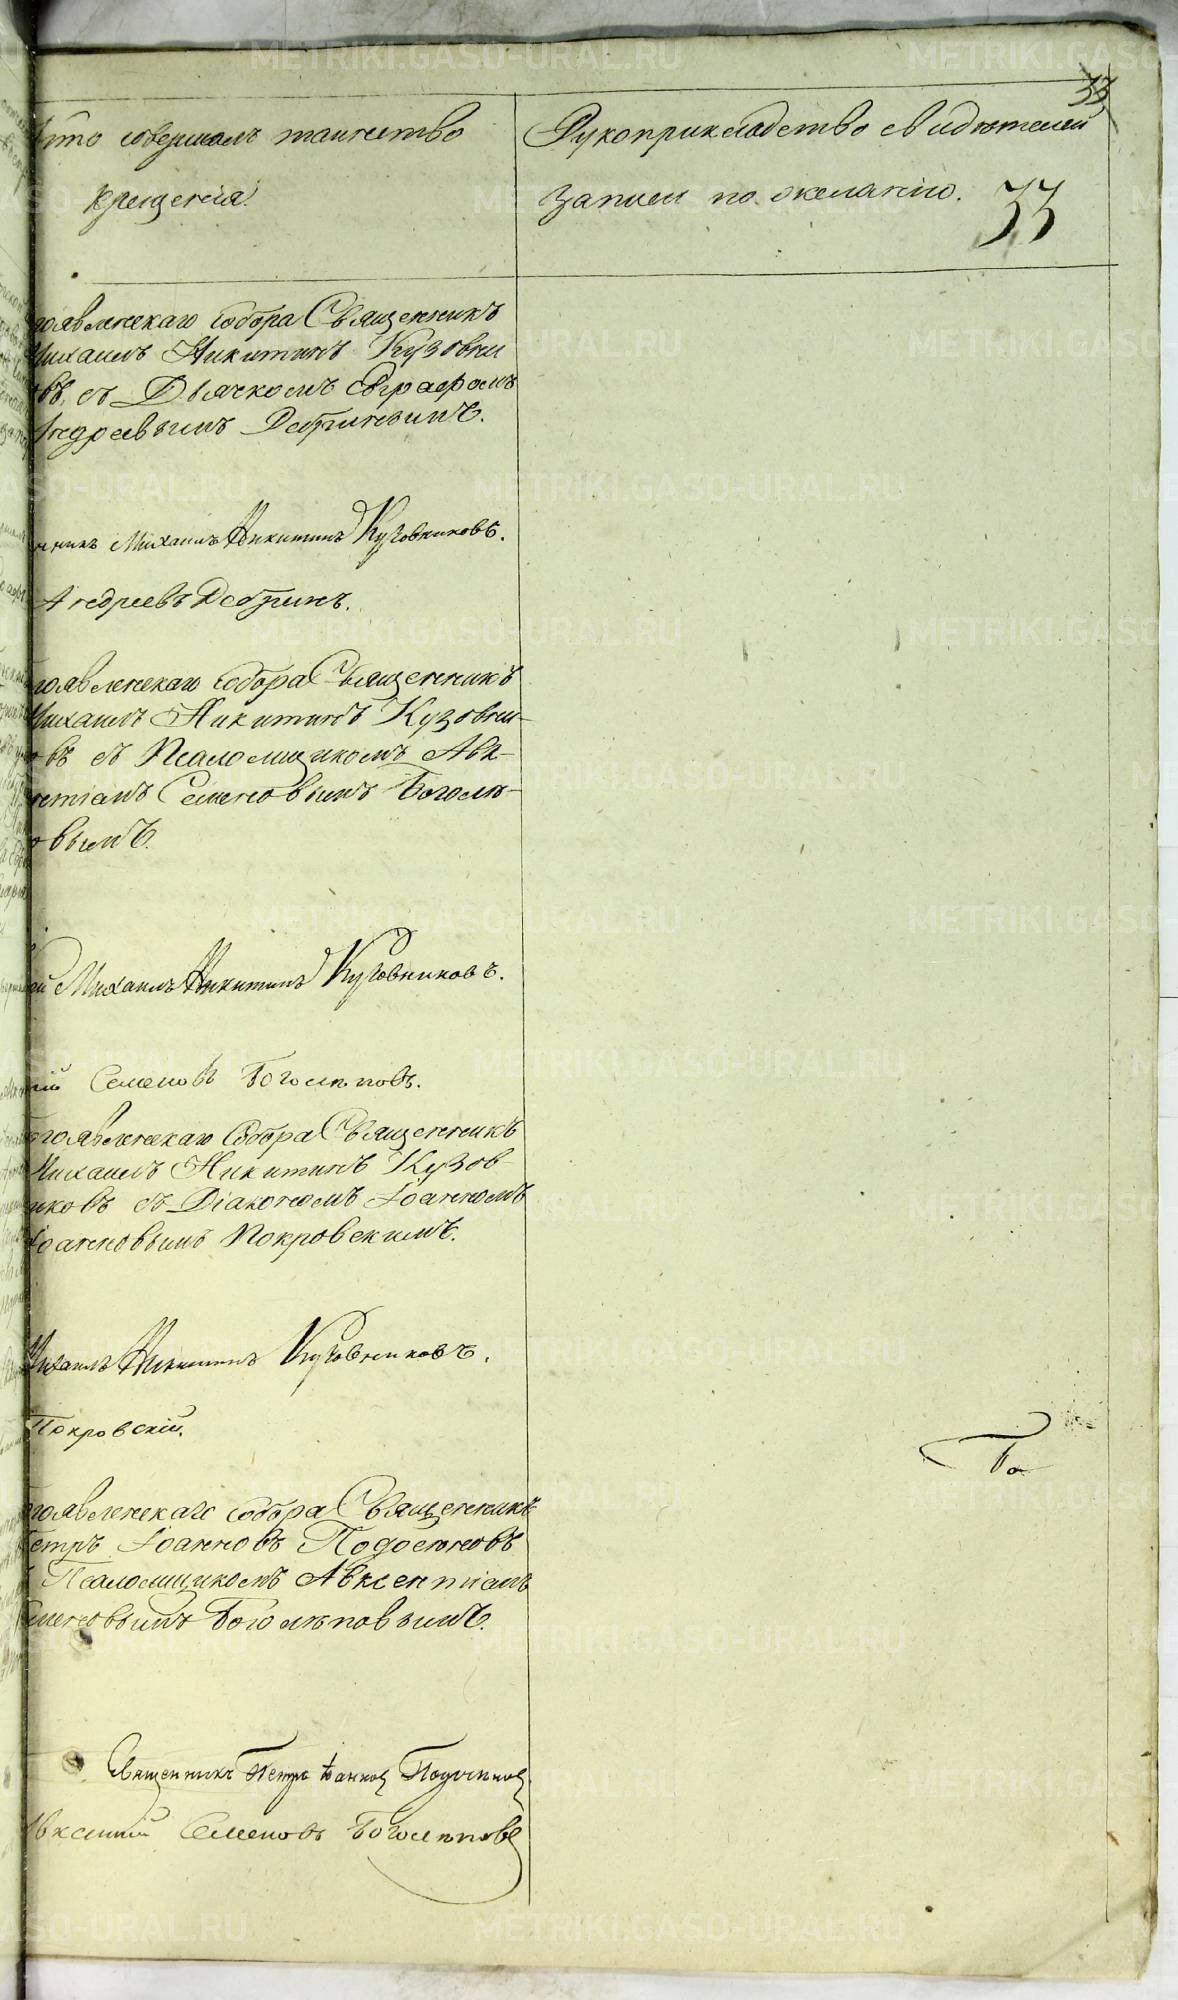 33
Кто совершалъ таинство
крещенія.
Рукоприкладство свидѣтелей
записи по желанію.
33
гоявленскаго Собора Священникъ
Михаилъ Никитинъ Кузовни
овъ, съ Дьячкомъ Евграфомъ
Андреевымъ Дебринымъ.
нникъ Михаилъ Никитинъ Кузовниковъ.
Андреевъ Дебринъ.
гоявленскаго Собора Священникъ
Михаилъ Никитинъ Кузовни-
овъ съ Псаломщикомъ Авк-
ентіемъ Семеновымъ Боголѣ-
овымъ.
ей Михаилъ Никитинъ Кузовниковъ.
тій Семеновъ Боголѣповъ.
гоявленскаго Собора Священникъ
Михаилъ Никитинъ Кузов-
иковъ съ Діакономъ Іоанномъ
Іоанновымъ Покровскимъ.
Михаилъ Никитинъ Кузовниковъ.
Покровскій.
гоявленскаго Собора Священникъ
Петръ Іоанновъ Подосеновъ
Псаломщикомъ Авксентіемъ
Семеновымъ Боголѣповымъ.
Священникъ Петръ Іоанновъ Подосеновъ
Авксентій Семеновъ Боголѣповъ
METRIKI.GASO-URAL.RU